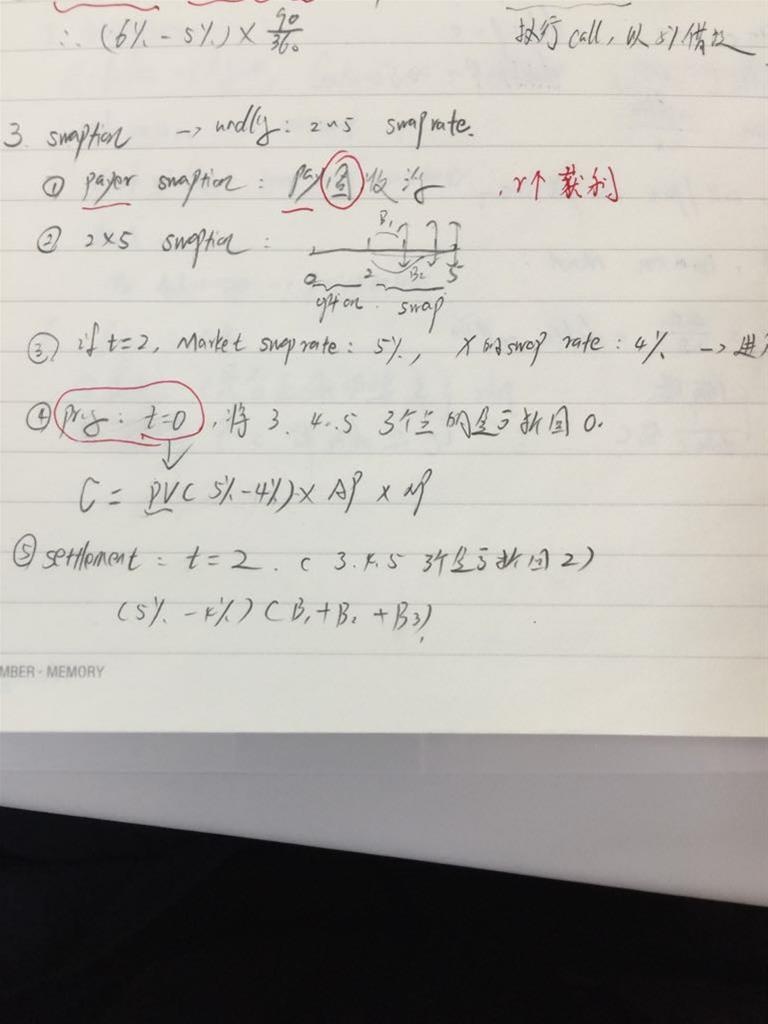 ∴ (6% - 5%) × 90/360 执行 call, 以 5% 借款
3. swaption → undly: 2×5 swap rate.
① payer swaption: pay 固 收 浮, r个 获利
② 2×5 swaption: B₁ B₂
0 2 5
option swap
③ if t=2, Market swap rate: 5%, X的swap rate: 4% → 进
④ pricing: t=0, 将 3. 4. 5 3个点的 折回 0.
C = PV( 5% - 4%) × AP × NP
⑤ settlement: t=2. ( 3. 4. 5 3个 折回 2)
(5% - 4%) ( B₁ + B₂ + B₃)
MBER - MEMORY